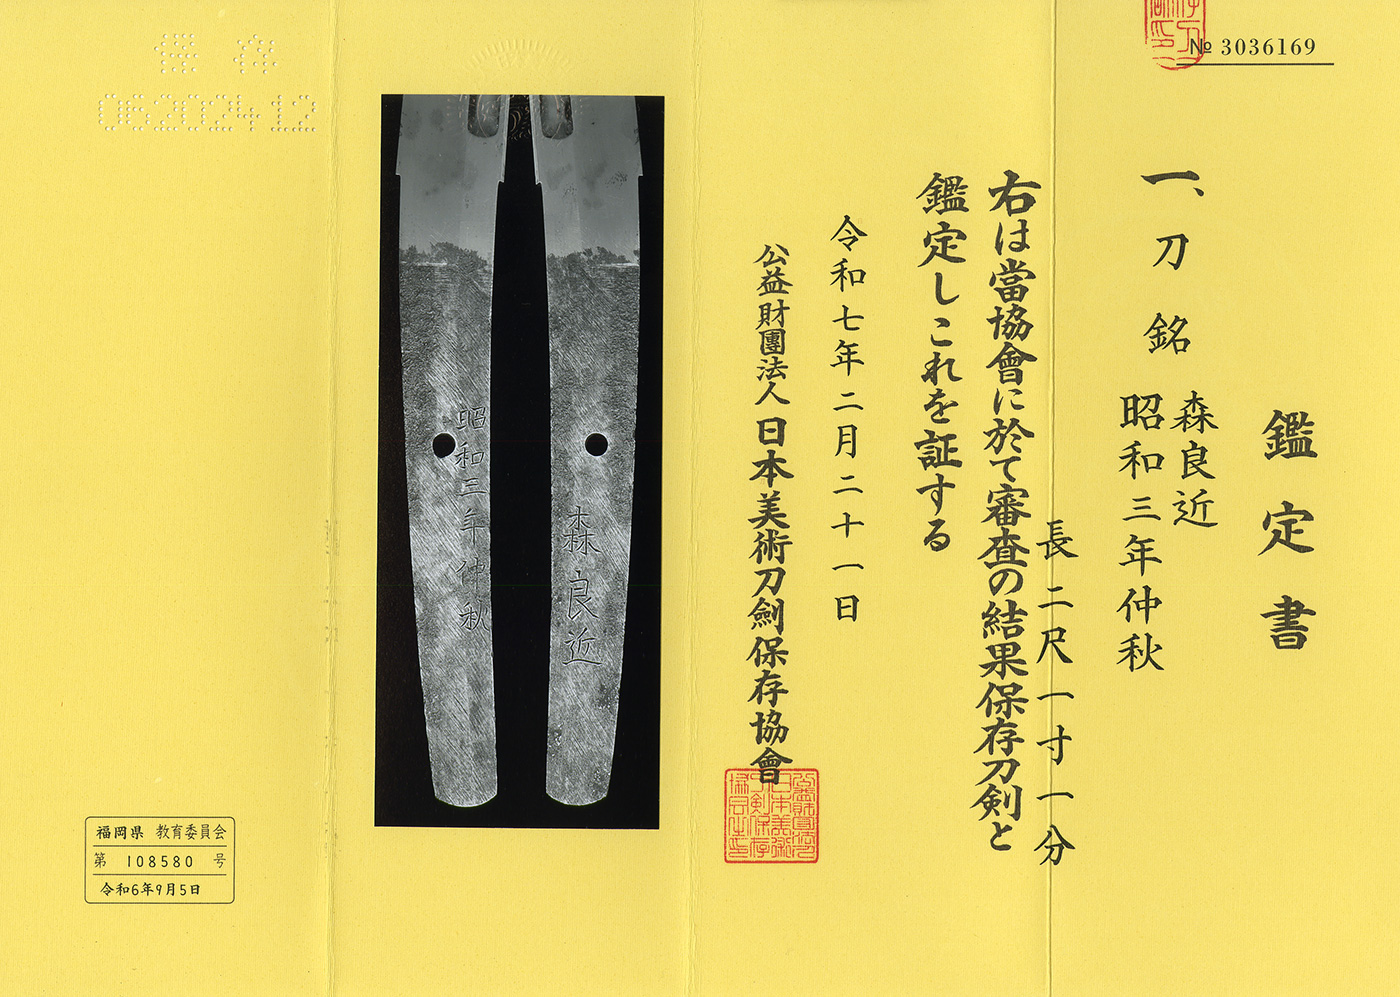 № 3036169
鑑定書
一、刀 銘 森良近
昭和三年仲秋
長 二尺一寸一分
右は當協會に於て審査の結果保存刀剣と
鑑定しこれを証する
令和七年二月二十一日
公益財團法人 日本美術刀劍保存協會
森良近
昭和三年仲秋
保存
0620241 2
福岡県 教育委員会
第 108580 号
令和6年9月5日